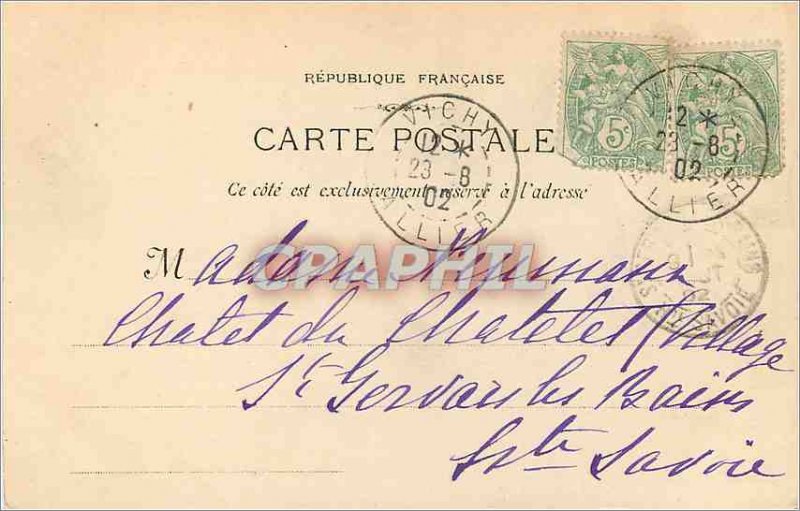 RÉPUBLIQUE FRANÇAISE
CARTE POSTALE
Ce côté est exclusivement réservé à l'adresse
VICHY
12 *
23 - 8
02
ALLIER
5c
POSTES
5
POSTES
VICHY
12 *
23 - 8
02
ALLIER
SAVOIE
CPAPHIL
Madame
Chalet du Chatelet (Village
St Gervais les Bains
Hte Savoie